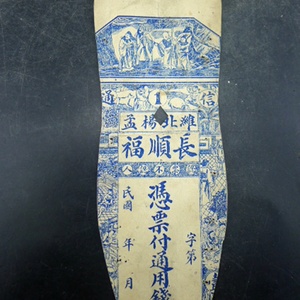 信 1 通
濰北楊孟
長順福
憑票付通用錢
字第
民國 年 月